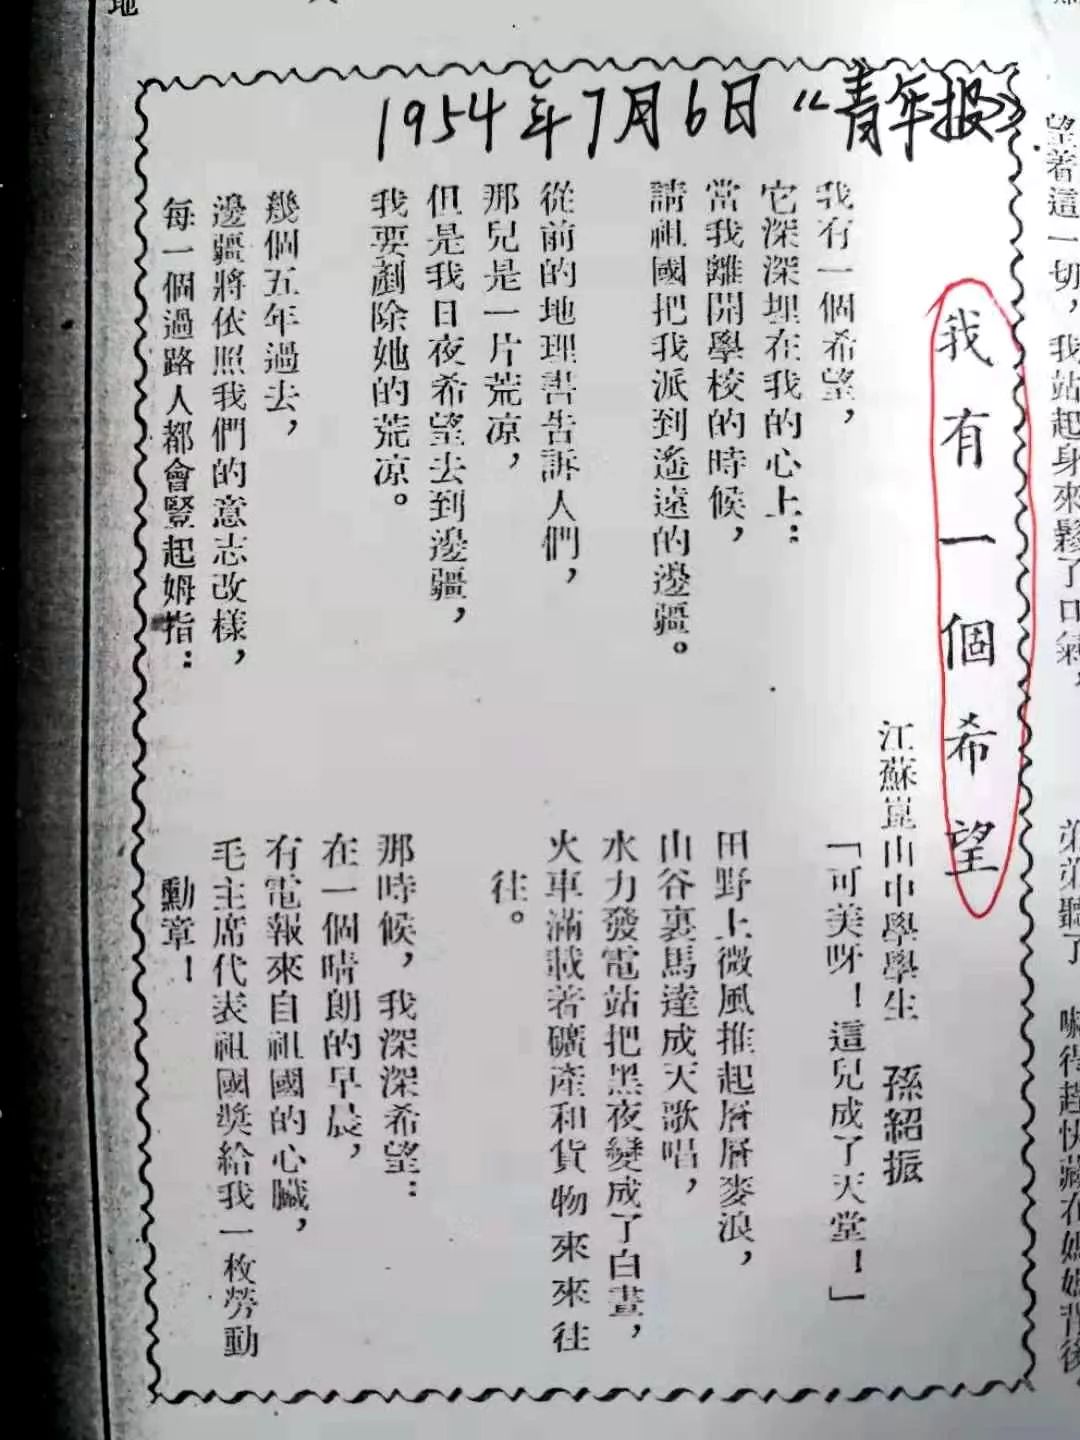 1954年7月6日《青年报》
我有一個希望
江蘇崑山中學學生　孫紹振
我有一個希望，
它深深埋在我的心上：
當我離開學校的時候，
請祖國把我派到遙遠的邊疆。
從前的地理書告訴人們，
那兒是一片荒涼，
但是我日夜希望去到邊疆，
我要剷除她的荒涼。
幾個五年過去，
邊疆將依照我們的意志改樣，
每一個過路人都會豎起姆指：
「可美呀！這兒成了天堂！」
田野上微風推起層層麥浪，
山谷裏馬達成天歌唱，
水力發電站把黑夜變成了白晝，
火車滿載著礦產和貨物來來往
往。
那時候，我深深希望：
在一個晴朗的早晨，
有電報來自祖國的心臟，
毛主席代表祖國獎給我一枚勞動
勳章！
望着這一切，我站起身來鬆了口氣，
聽了
嚇得趕快藏在媽媽背後，
地